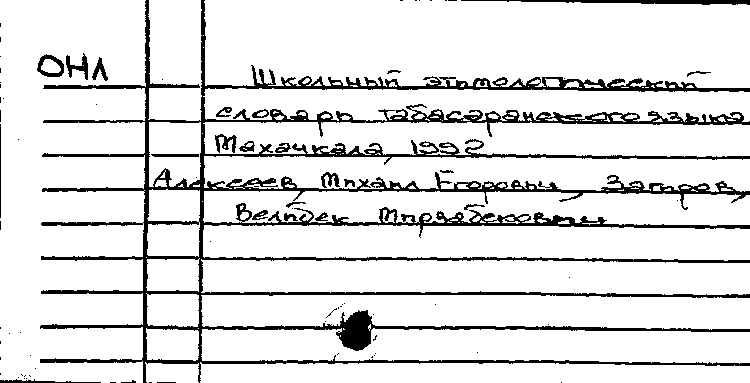 ОНЛ
Школьный этимологический
словарь табасаранского языка
Махачкала, 1992
Алексеев, Михаил Егорович, Загиров,
Велибек Мирзабекович